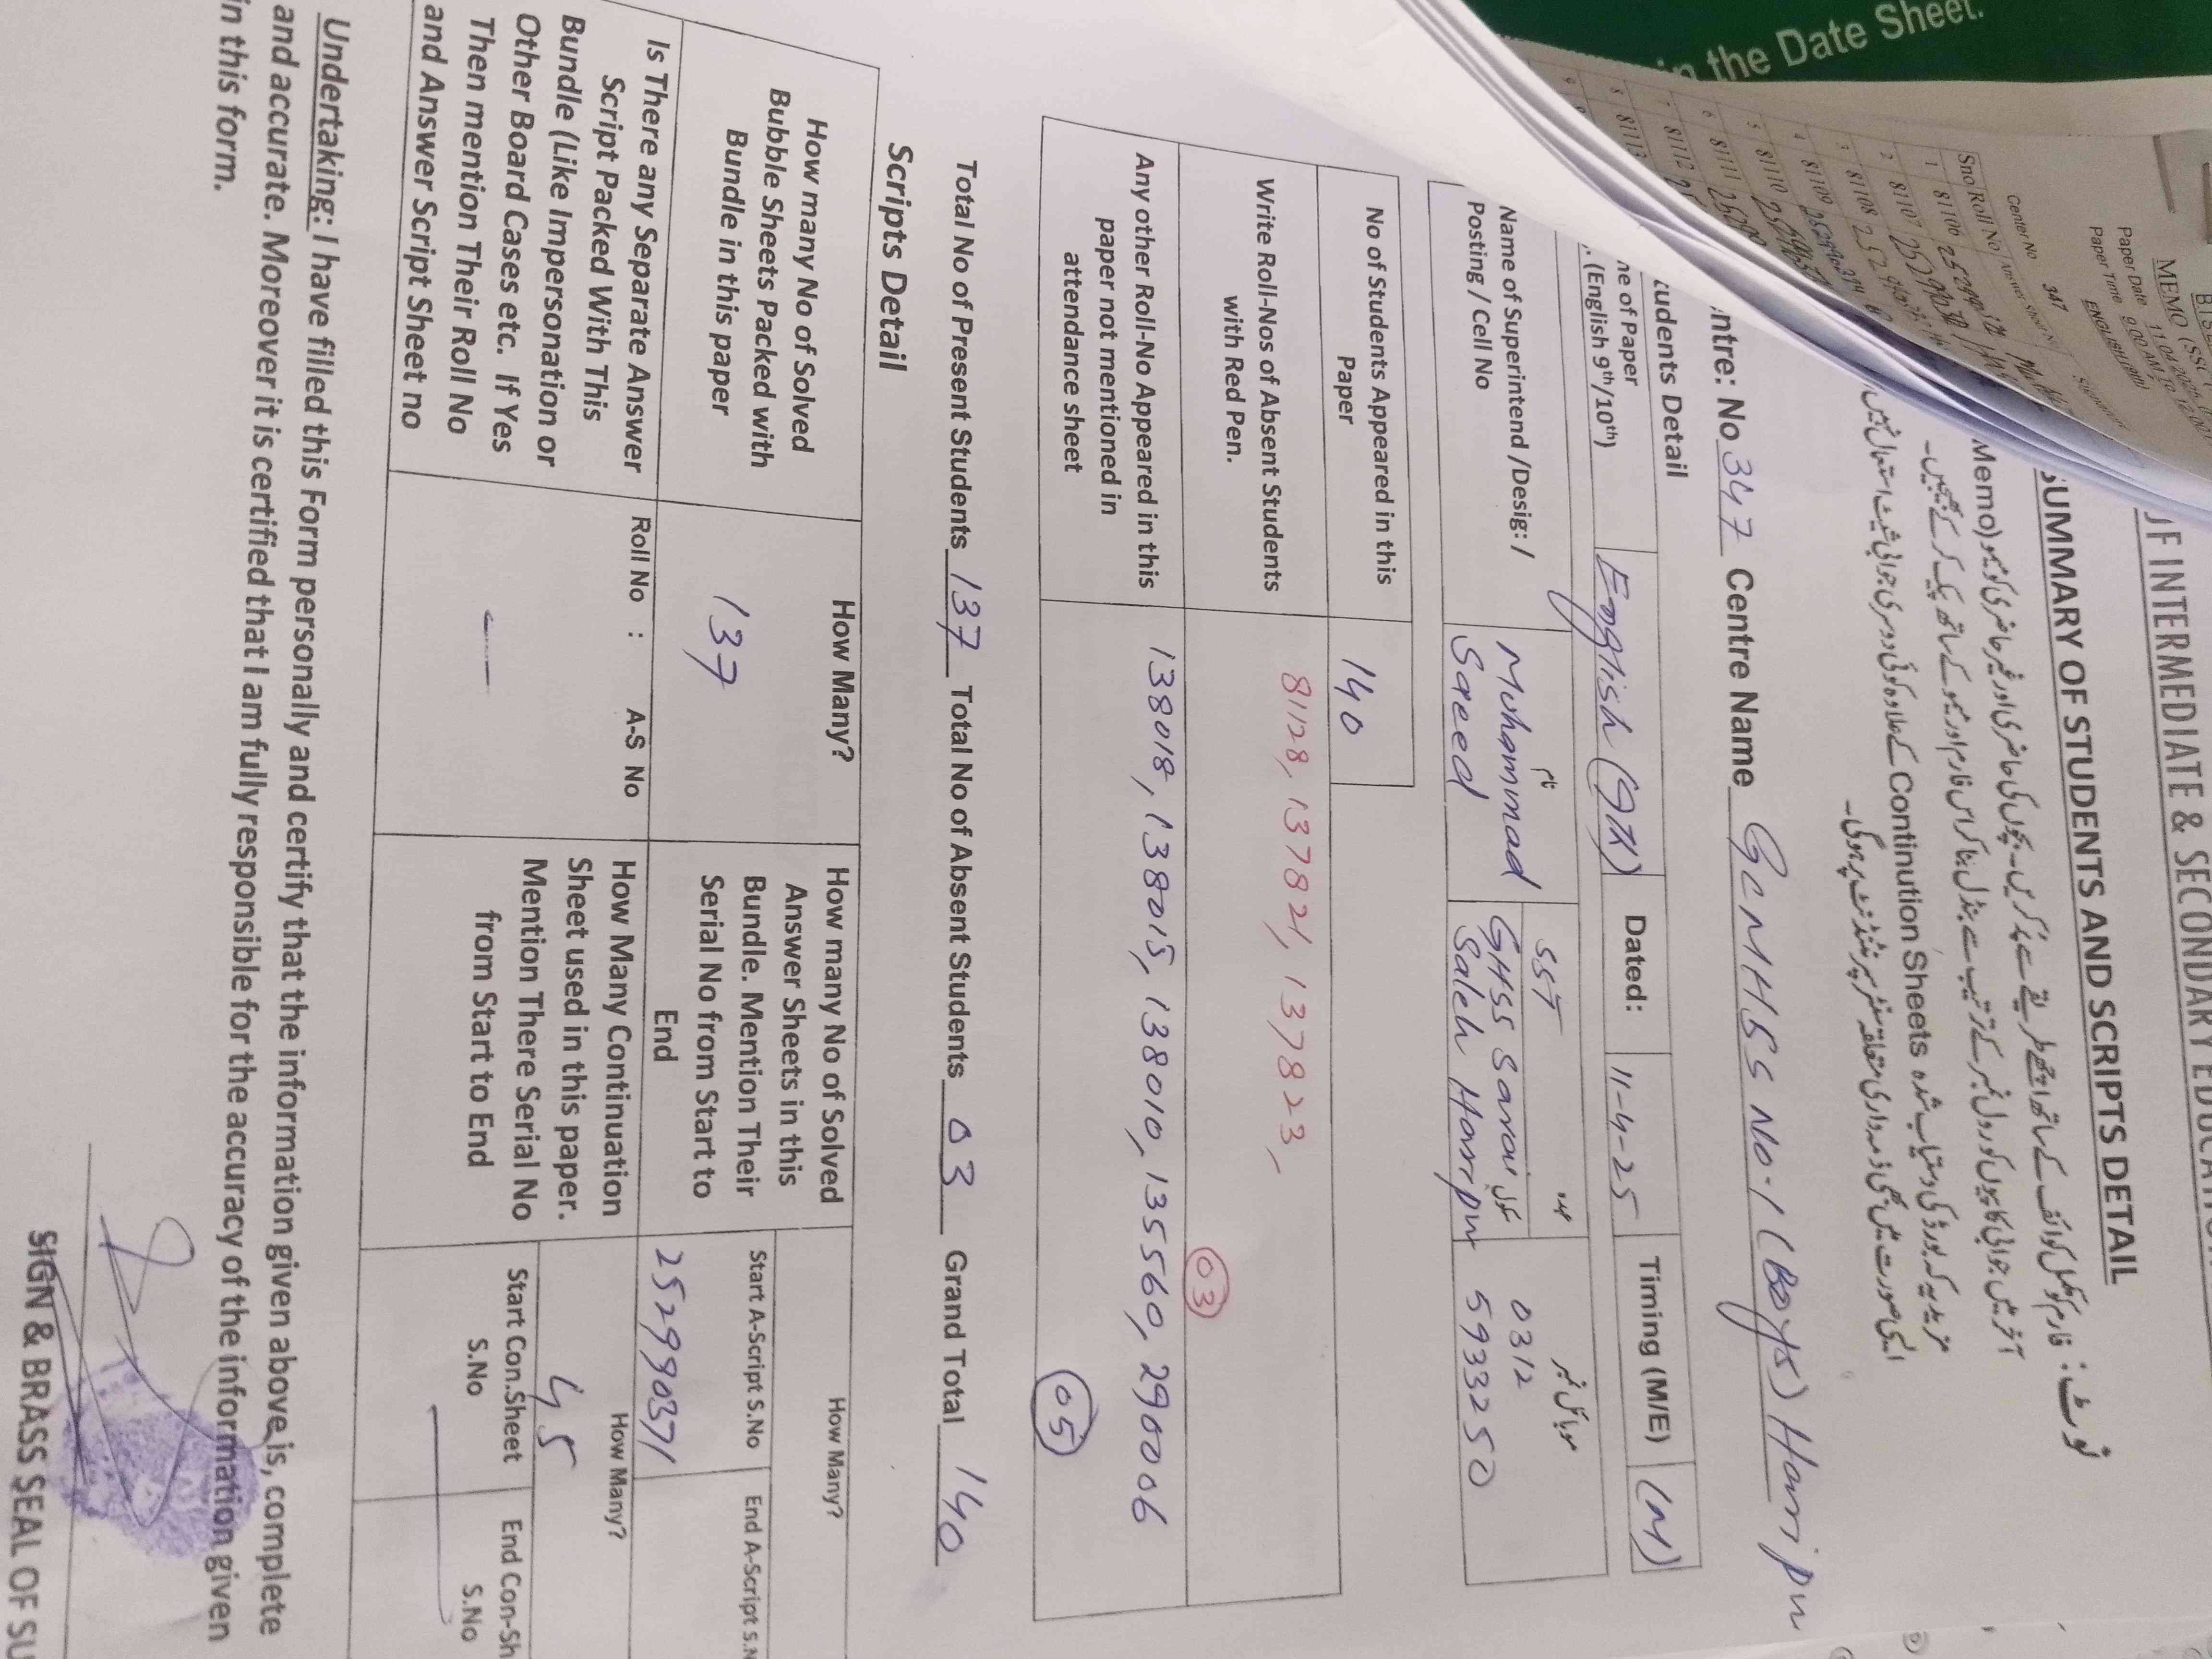 in the Date Sheet.
MEMO (SSC
Paper Date
11.04.2025
Paper Time 9:00 AM To 12:00
ENGLISH
Center No 347
Sno Roll No
1 81106
2 81107
3 81108
4 81109
5 81110
6 81111
7 81112
8 81113
OF INTERMEDIATE & SECONDARY EDUCATION
SUMMARY OF STUDENTS AND SCRIPTS DETAIL
نوٹ: فارم کو مکمل کوائف کے ساتھ اچھے طریقے سے پُر کریں۔ بچوں کی حاضری اور غیر حاضری کو میمو (Memo)
آخر میں جوابی کاپیوں کو رول نمبر کے ترتیب سے بنڈل بنا کر اس فارم اور میمو کے ساتھ پیک کر کے بھیجیں۔
مزید یہ کہ بورڈ کی دستیاب شدہ Continution Sheets کے علاوہ کوئی دوسری جوابی شیٹ استعمال نہیں
اسکی صورت میں یہ ذمہ داری متعلقہ سنٹر سپرنٹنڈنٹ پر ہوگی۔
ntre: No 347 Centre Name GCMHSS No.1 (Boys) Haripur
tudents Detail
ne of Paper
. (English 9th/10th)
English (9th)
Dated:
11-4-25
Timing (M/E)
(M)
Name of Superintend /Desig: /
Posting / Cell No
نام
Muhammad
Saeed
عہدہ
SST
سکول
GHSS Sarai
Saleh Haripur
موبائل نمبر
0312
5933250
No of Students Appeared in this
Paper
140
Write Roll-Nos of Absent Students
with Red Pen.
81128, 137821, 137823,
03
Any other Roll-No Appeared in this
paper not mentioned in
attendance sheet
138018, 138015, 138010, 135560, 290006
05
Total No of Present Students 137 Total No of Absent Students 03 Grand Total 140
Scripts Detail
How many No of Solved
Bubble Sheets Packed with
Bundle in this paper
How Many?
137
How many No of Solved
Answer Sheets in this
Bundle. Mention Their
Serial No from Start to
End
How Many?
Start A-Script S.No
End A-Script S.N
252990371
Is There any Separate Answer
Script Packed With This
Bundle (Like Impersonation or
Other Board Cases etc. If Yes
Then mention Their Roll No
and Answer Script Sheet no
Roll No : A-S No
—
How Many Continuation
Sheet used in this paper.
Mention There Serial No
from Start to End
How Many?
45
Start Con.Sheet
S.No
End Con-Sh
S.No
Undertaking: I have filled this Form personally and certify that the information given above is, complete
and accurate. Moreover it is certified that I am fully responsible for the accuracy of the information given
in this form.
SIGN & BRASS SEAL OF SU